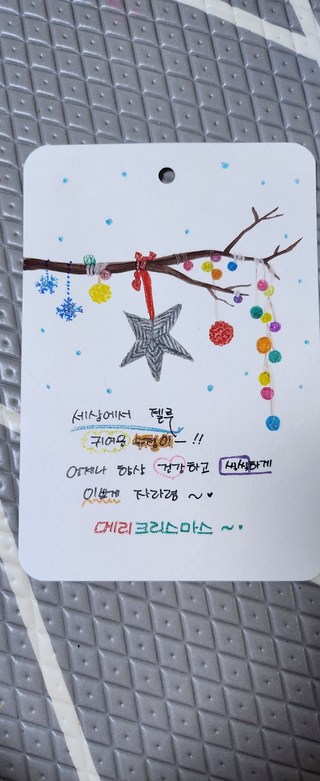 세상에서 젤루
귀여운 수정이 ~ !!
언제나 항상 건강하고 씩씩하게
이쁘게 자라렴 ~ ♥
메리크리스마스 ~ ♥